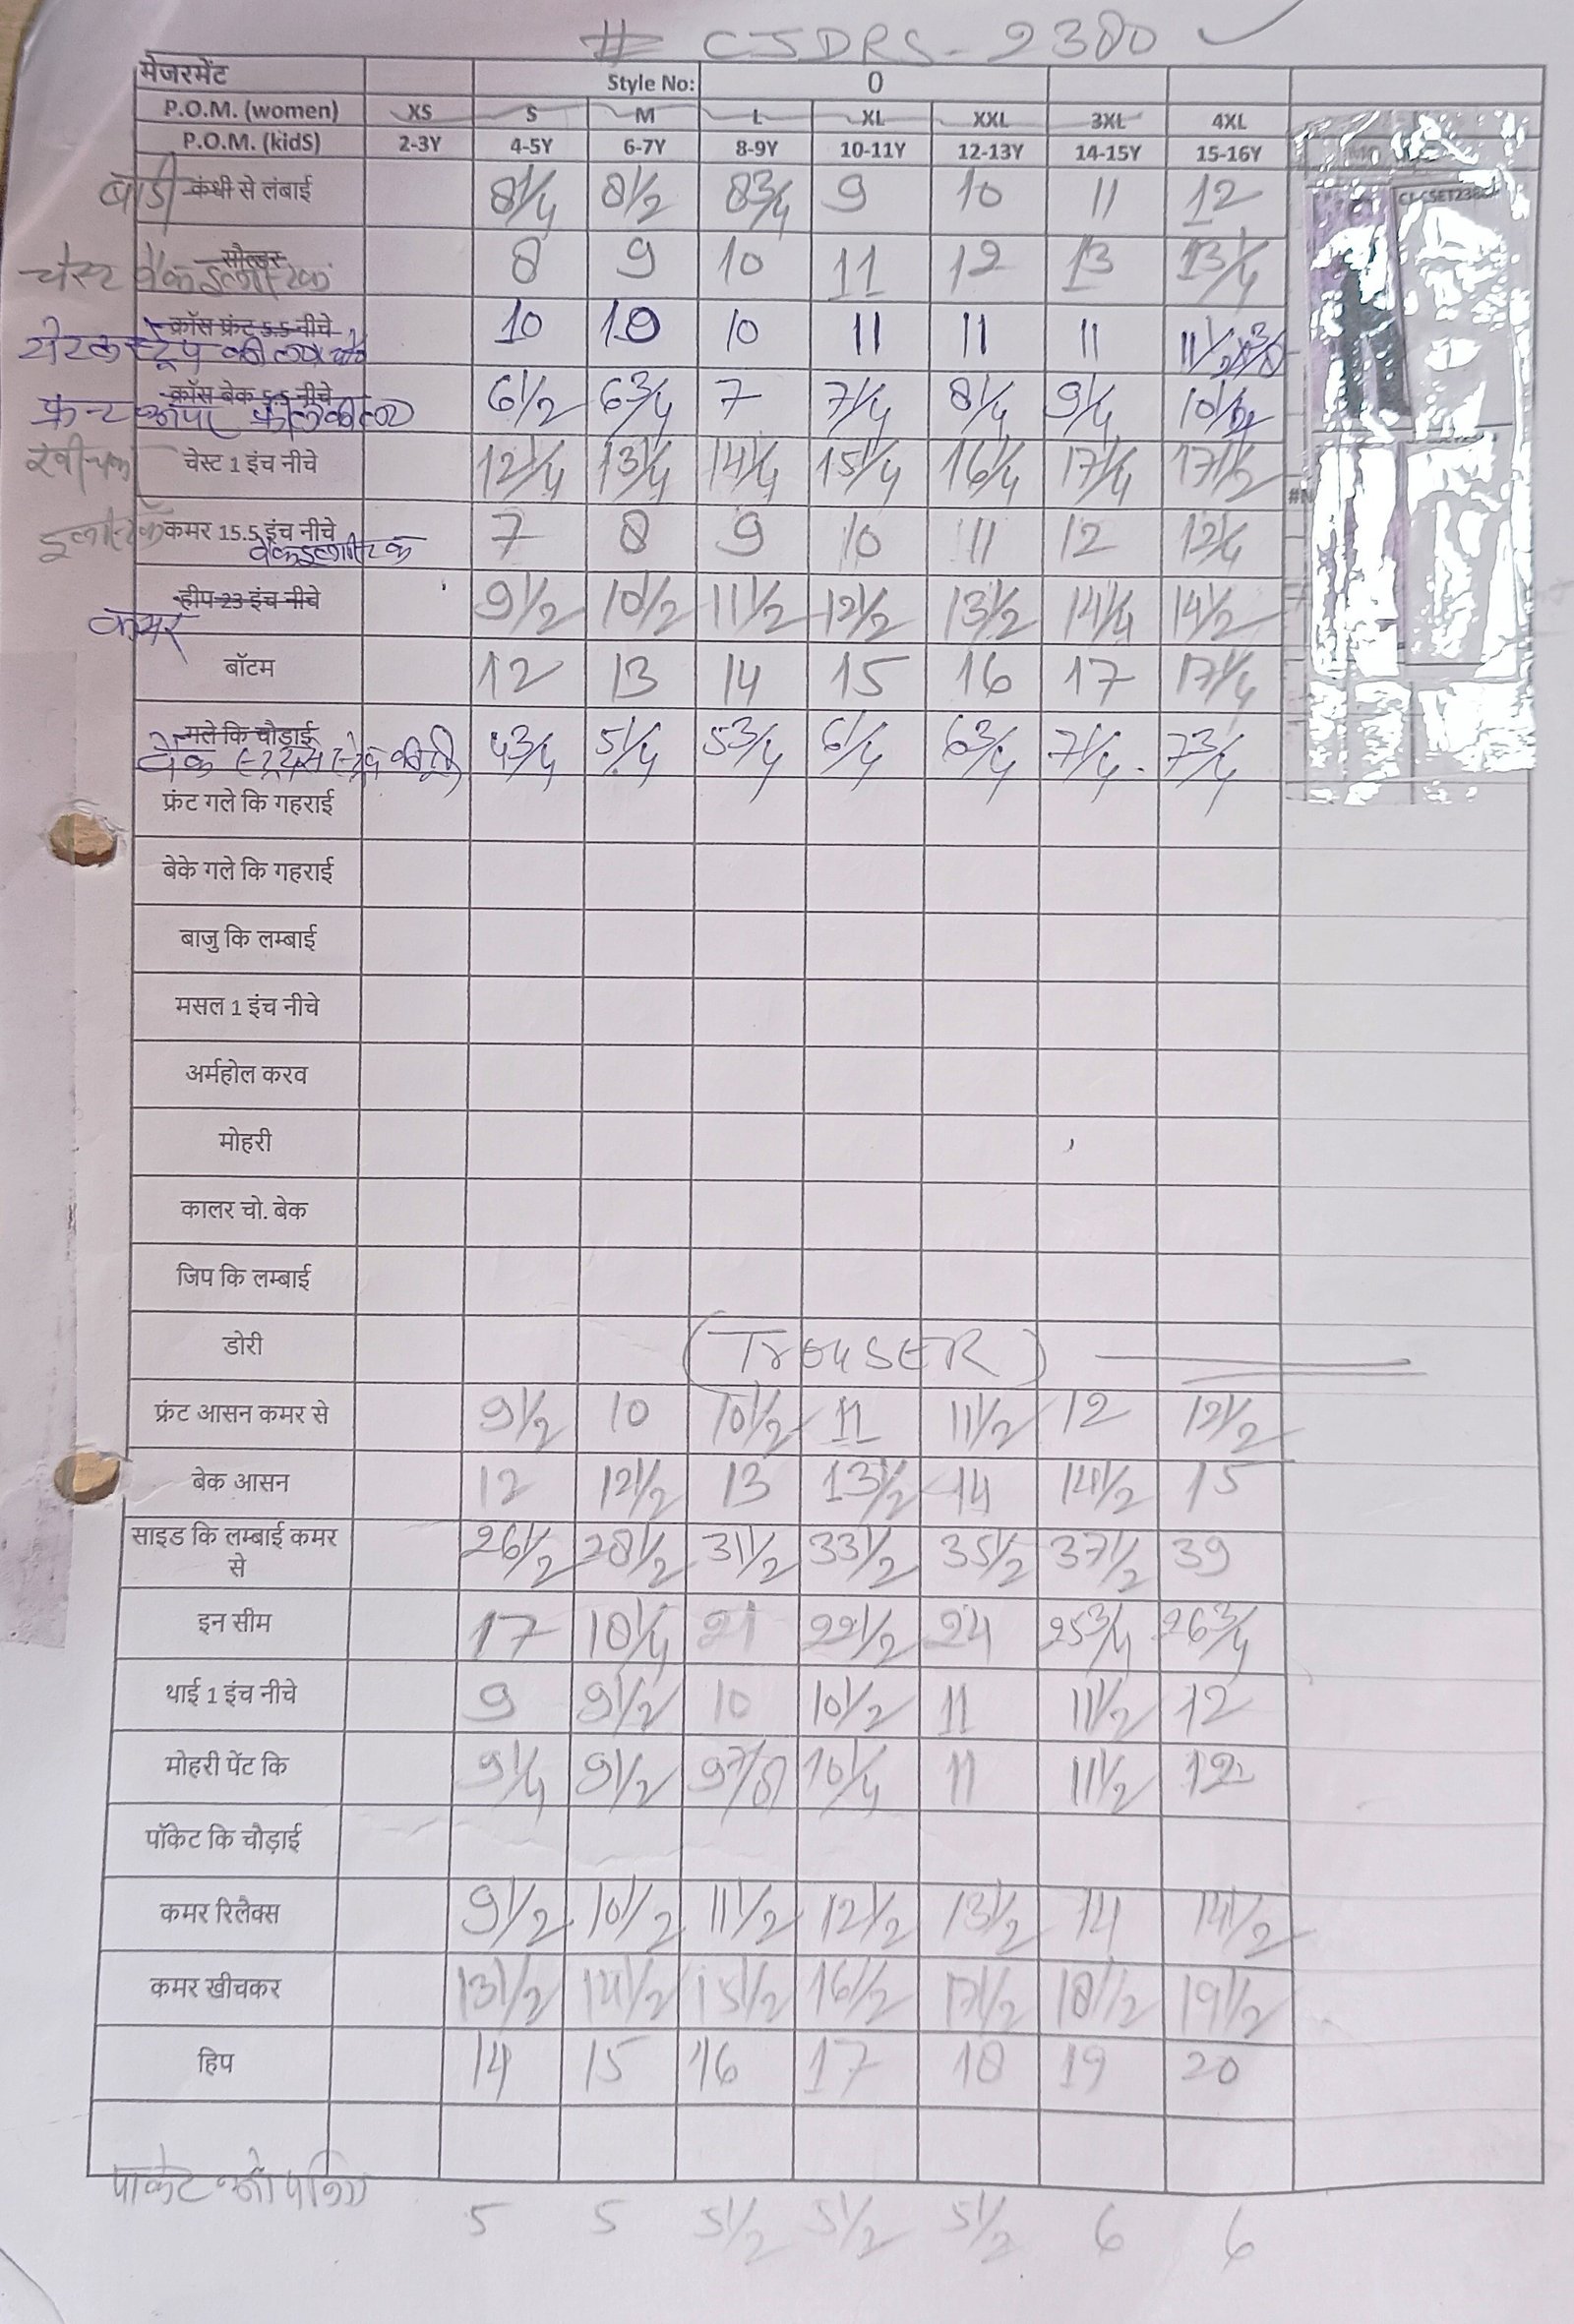 # CJDRS-2380
मेजरमेंट Style No: 0
P.O.M. (women) XS S M L XL XXL 3XL 4XL
P.O.M. (kidS) 2-3Y 4-5Y 6-7Y 8-9Y 10-11Y 12-13Y 14-15Y 15-16Y
बाडी कंधी से लंबाई 8 1/4 8 1/2 8 3/4 9 10 11 12
सौल्डर
चेस्ट बैक इलास्टिक 8 9 10 11 12 13 13 1/4
क्रॉस फ्रंट 5.5 नीचे 10 10 10 11 11 11 11 1/2
क्रॉस बेक 5.5 नीचे 6 1/2 6 3/4 7 7 1/4 8 1/4 9 1/4
फ्रन्ट
खीचकर चेस्ट 1 इंच नीचे 12 1/4 13 1/4 14 1/4 15 1/4 16 1/4 17 1/4 17 1/2
कमर 15.5 इंच नीचे 7 8 9 10 11 12 12 1/4
बैक इलास्टिक
हीप 23 इंच नीचे 9 1/2 10 1/2 11 1/2 12 1/2 13 1/2 14 1/4 14 1/2
कमर
बॉटम 12 13 14 15 16 17 17 1/4
गले कि चौड़ाई
बैक 4 3/4 5 1/4 5 3/4 6 1/4 6 3/4 7 1/4 7 3/4
फ्रंट गले कि गहराई
बेके गले कि गहराई
बाजु कि लम्बाई
मसल 1 इंच नीचे
अर्महोल करव
मोहरी
कालर चो. बेक
जिप कि लम्बाई
डोरी (TrouSER)
फ्रंट आसन कमर से 9 1/2 10 10 1/2 11 11 1/2 12 12 1/2
बेक आसन 12 12 1/2 13 13 1/2 14 14 1/2 15
साइड कि लम्बाई कमर से 26 1/2 28 1/2 31 1/2 33 1/2 35 1/2 37 1/2 39
इन सीम 17 18 1/4 21 22 1/2 24 25 3/4 26 3/4
थाई 1 इंच नीचे 9 9 1/2 10 10 1/2 11 11 1/2 12
मोहरी पेंट कि 9 1/4 9 1/2 9 7/8 10 1/4 11 11 1/2 12
पॉकेट कि चौड़ाई
कमर रिलैक्स 9 1/2 10 1/2 11 1/2 12 1/2 13 1/2 14 14 1/2
कमर खीचकर 13 1/2 14 1/2 15 1/2 16 1/2 17 1/2 18 1/2 19 1/2
हिप 14 15 16 17 18 19 20
पाकेट ओपनिंग 5 5 5 1/2 5 1/2 5 1/2 6 6